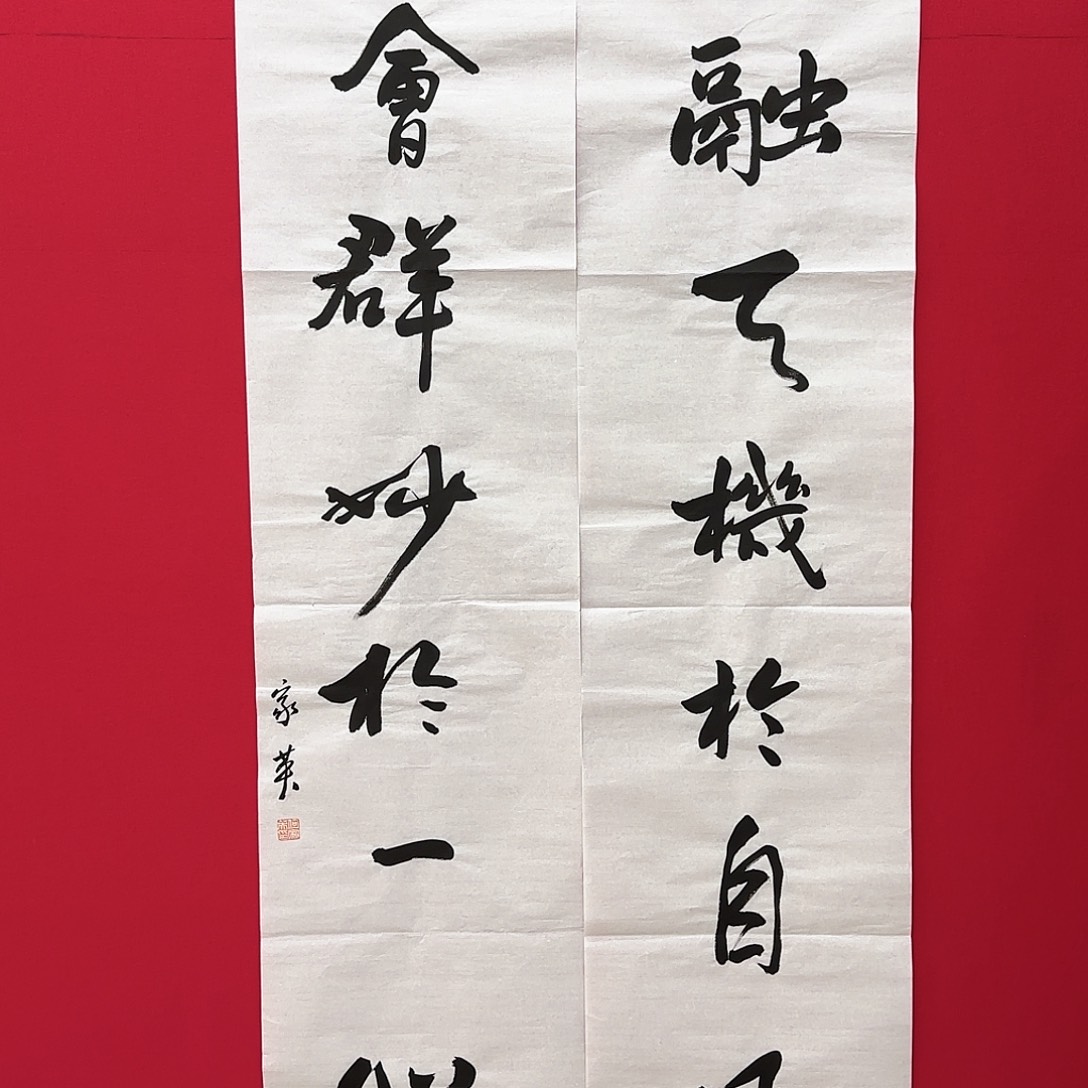 融天機於自
會群妙於一
家英